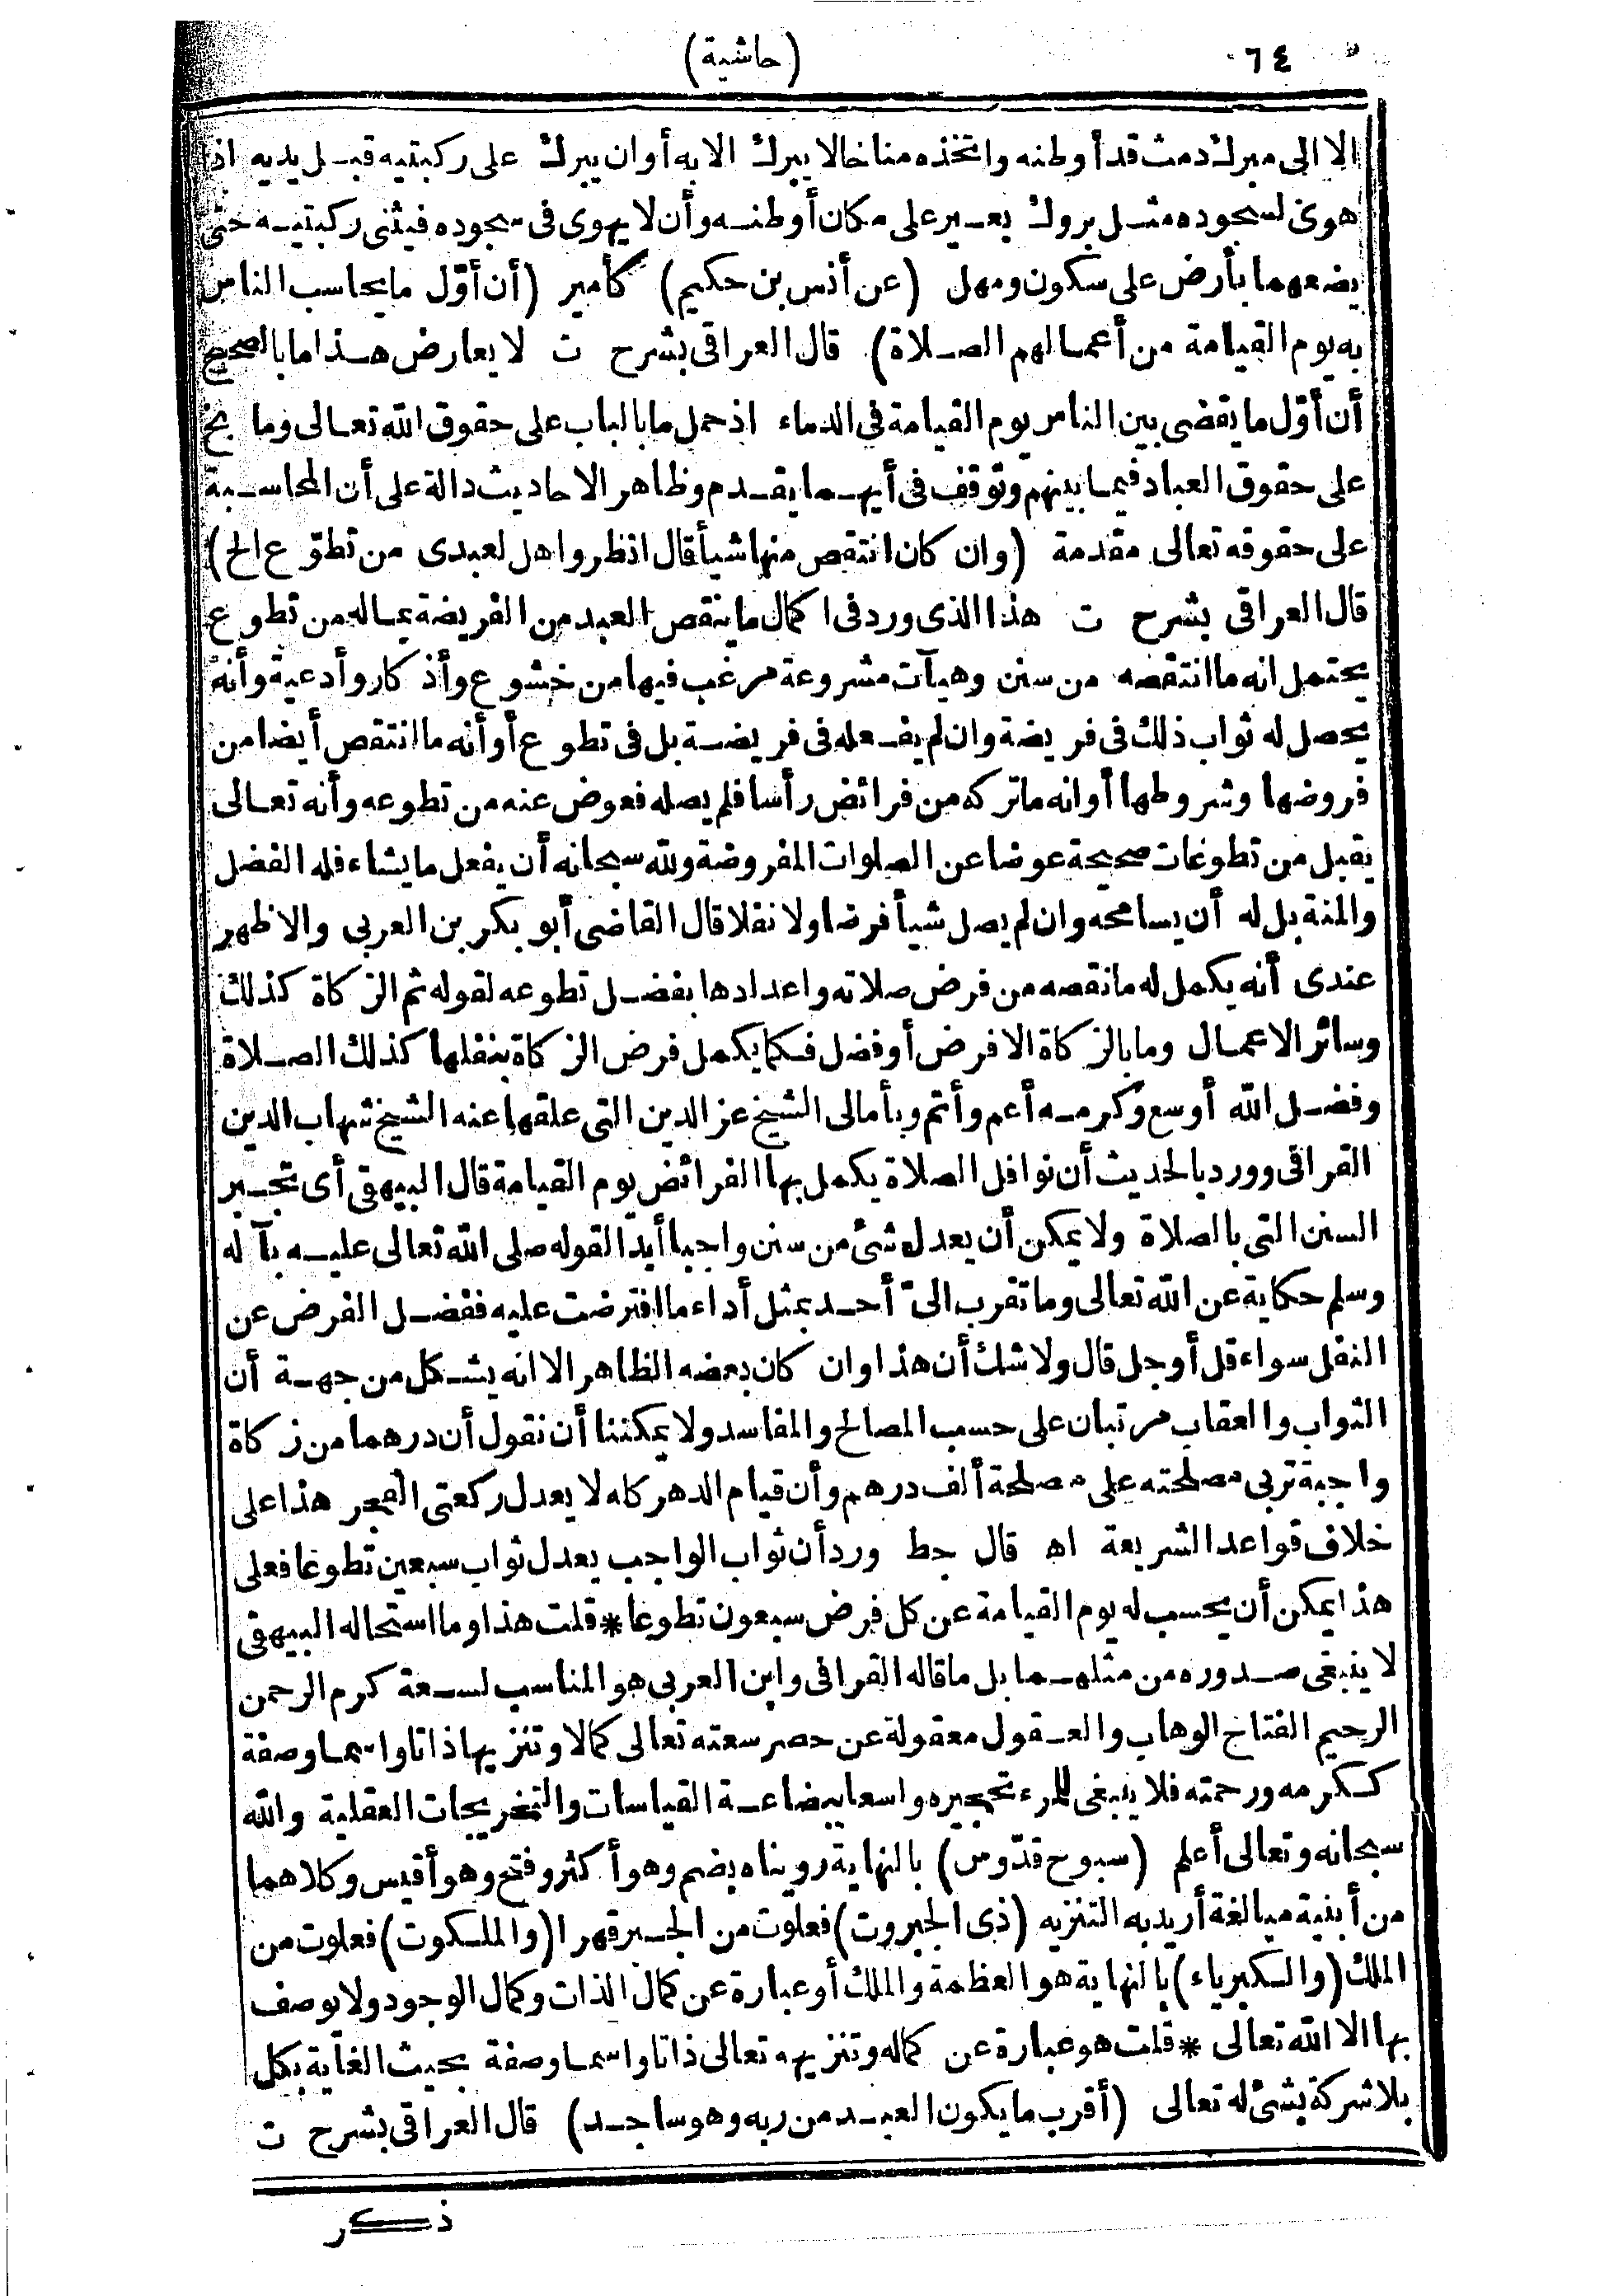 ٦٤
(حاشية)
الا الى مبرك دمث قد أوطنه واتخذه مناخا لا يبرك الا به أو ان يبرك على ركبتيه قبل يديه اذا
هوى لسجوده مثل بروك بعير على مكان أوطنه وأن لا يهوى فى سجوده فيثنى ركبتيه حتى
يضعهما بأرض على سكون ومهل (عن أنس بن حكيم) كأمير (أن أوّل ما يحاسب الناس
به يوم القيامة من أعمالهم الصلاة) قال العراقى بشرح ت لا يعارض هذا ما بالصحيح
أن أوّل ما يقضى بين الناس يوم القيامة فى الدماء اذ حمل ما بالباب على حقوق الله تعالى وما بخ
على حقوق العباد فيما بينهم وتوقف فى أيهما يقدم وظاهر الاحاديث دالة على أن المحاسبة
على حقوقه تعالى مقدمة (وان كان انتقص منها شيأ قال انظروا هل لعبدى من تطوّع الخ)
قال العراقى بشرح ت هذا الذى ورد فى اكمال ما ينقص العبد من الفريضة بماله من تطوع
يحتمل انه ما انتقصه من سنن وهيآت مشروعة مرغب فيها من خشوع وأذكار وأدعية وأنه
يحصل له ثواب ذلك فى فريضة وان لم يفعله فى فريضة بل فى تطوع أو أنه ما انتقص أيضا من
فروضها وشروطها أو انه ما تركه من فرائض رأسا فلم يصله فعوض عنه من تطوعه وأنه تعالى
يقبل من تطوعات صحيحة عوضا عن الصلوات المفروضة ولله سبحانه أن يفعل ما يشاء فله الفضل
والمنة بل له أن يسامحه وان لم يصل شيأ فرضا ولا نفلا قال القاضى أبو بكر بن العربى والاظهر
عندى أنه يكمل له ما نقصه من فرض صلاته واعدادها بفضل تطوعه لقوله ثم الزكاة كذلك
وسائر الاعمال وما بالزكاة الا فرض أو فضل فكما يكمل فرض الزكاة بنفلها كذلك الصلاة
وفضل الله أوسع وكرمه أعم وأتم وبأمالى الشيخ عز الدين التى علقها عنه الشيخ شهاب الدين
القرافى وورد بالحديث أن نوافل الصلاة يكمل بها الفرائض يوم القيامة قال البيهقى أى تجبر
السنن التى بالصلاة ولا يمكن أن يعدل شئ من سنن واجبا أبدا لقوله صلى الله تعالى عليه بآله
وسلم حكاية عن الله تعالى وما تقرب الىّ أحد بمثل أداء ما افترضت عليه ففضل الفرض عن
النفل سواء قل أو جل قال ولا شك أن هذا وان كان بعضه الظاهر الا انه يشكل من جهة أن
الثواب والعقاب مرتبان على حسب المصالح والمفاسد ولا يمكننا أن نقول أن درهما من زكاة
واجبة تربى مصلحته على مصلحة ألف درهم وأن قيام الدهر كله لا يعدل ركعتى الفجر هذا على
خلاف قواعد الشريعة اه قال جط ورد أن ثواب الواجب يعدل ثواب سبعين تطوعا فعلى
هذا يمكن أن يحسب له يوم القيامة عن كل فرض سبعون تطوعا * قلت هذا وما استحاله البيهقى
لا ينبغى صدوره من مثلهما بل ما قاله القرافى وابن العربى هو المناسب لسعة كرم الرحمن
الرحيم الفتاح الوهاب والعقول معقولة عن حصر سعته تعالى كمالا وتنزيها ذاتا واسما وصفة
ككرمه ورحمته فلا ينبغى للمرء تحجيره واسعا ببضاعة القياسات والتخريجات العقلية والله
سبحانه وتعالى أعلم (سبوح قدّوس) بالنهاية رويناه بضم وهو أكثر وفتح وهو أقيس وكلاهما
من أبنية مبالغة أريد به التنزيه (ذى الجبروت) فعلوت من الجبر قهرا (والملكوت) فعلوت من
الملك (والكبرياء) بالنهاية هو العظمة والملك أو عبارة عن كمال الذات وكمال الوجود ولا يوصف
بها الا الله تعالى * قلت هو عبارة عن كماله وتنزيهه تعالى ذاتا واسما وصفة بحيث الغاية بكل
بلا شركة بشئ له تعالى (أقرب ما يكون العبد من ربه وهو ساجد) قال العراقى بشرح ت
ذكر